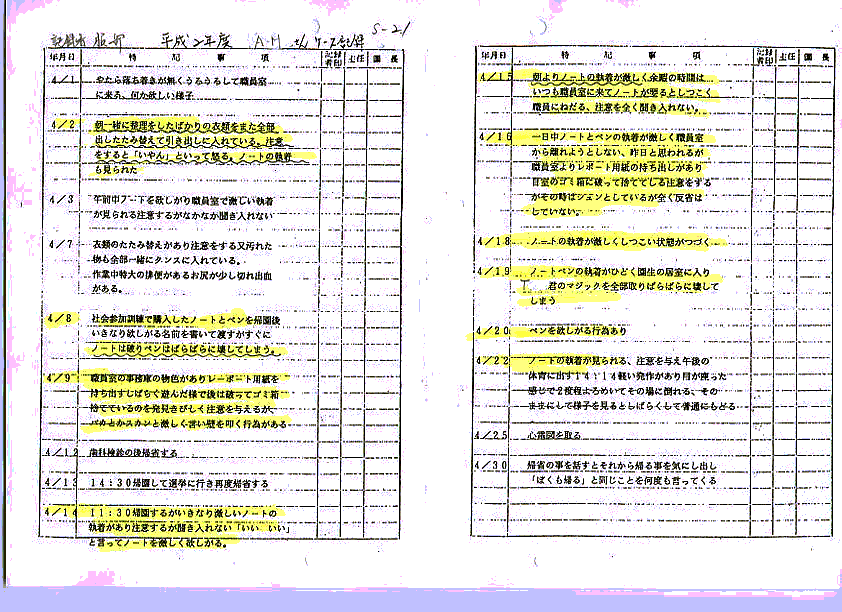 平成2年度 A.M さん ケース記録
S-21
年月日 特記事項 記録者印 主任 園長
4/1 やたら落ち着きが無くうろうろして職員室
に来る、何か欲しい様子
4/2 朝一緒に整理をしたばかりの衣類をまた全部
出したたみ替えて引き出しに入れている。注意
をすると「いやん」といって怒る。ノートの執着
も見られた
4/3 午前中ノートを欲しがり職員室で激しい執着
が見られる注意するがなかなか聞き入れない
4/7 衣類のたたみ替えがあり注意をする又汚れた
物も全部一緒にタンスに入れている。
作業中特大の排便があるお尻が少し切れ出血
がある。
4/8 社会参加訓練で購入したノートとペンを帰園後
いきなり欲しがる名前を書いて渡すがすぐに
ノートは破りペンはばらばらに壊してしまう。
4/9 職員室の事務庫の物色がありレーポート用紙を
持ち出すしばらく遊んだ様で後は破ってゴミ箱
捨てているのを発見きびしく注意を与えるが、
バカとかスカンと激しく言い壁を叩く行為がある
4/12 歯科検診の後帰省する
4/13 14:30帰園して選挙に行き再度帰省する
4/14 11:30帰園するがいきなり激しいノートの
執着があり注意するが聞き入れない「いい いい」
と言ってノートを激しく欲しがる。
年月日 特記事項 記録者印 主任 園長
4/15 朝よりノートの執着が激しく余暇の時間は
いつも職員室に来てノートが要るとしつこく
職員にねだる、注意を全く聞き入れない。
4/16 一日中ノートとペンの執着が激しく職員室
から離れようとしない、昨日と思われるが
職員室よりレポート用紙の持ち出しがあり
自室のゴミ箱に破って捨ててしる注意をする
がその時はシュンとしているが全く反省は
していない。
4/18 ノートの執着が激しくしつこい状態がつづく
4/19 ノートペンの執着がひどく園生の居室に入り
T 君のマジックを全部取りばらばらに壊して
しまう
4/20 ペンを欲しがる行為あり
4/22 ノートの執着が見られる、注意を与え午後の
体育に出す14:14軽い発作があり目が座った
感じで2度程よろめいてその場に倒れる、その
ままにして様子を見るとしばらくして普通にもどる
4/25 心電図を取る
4/30 帰省の事を話すとそれから帰る事を気にし出し
「ぼくも帰る」と同じことを何度も言ってくる